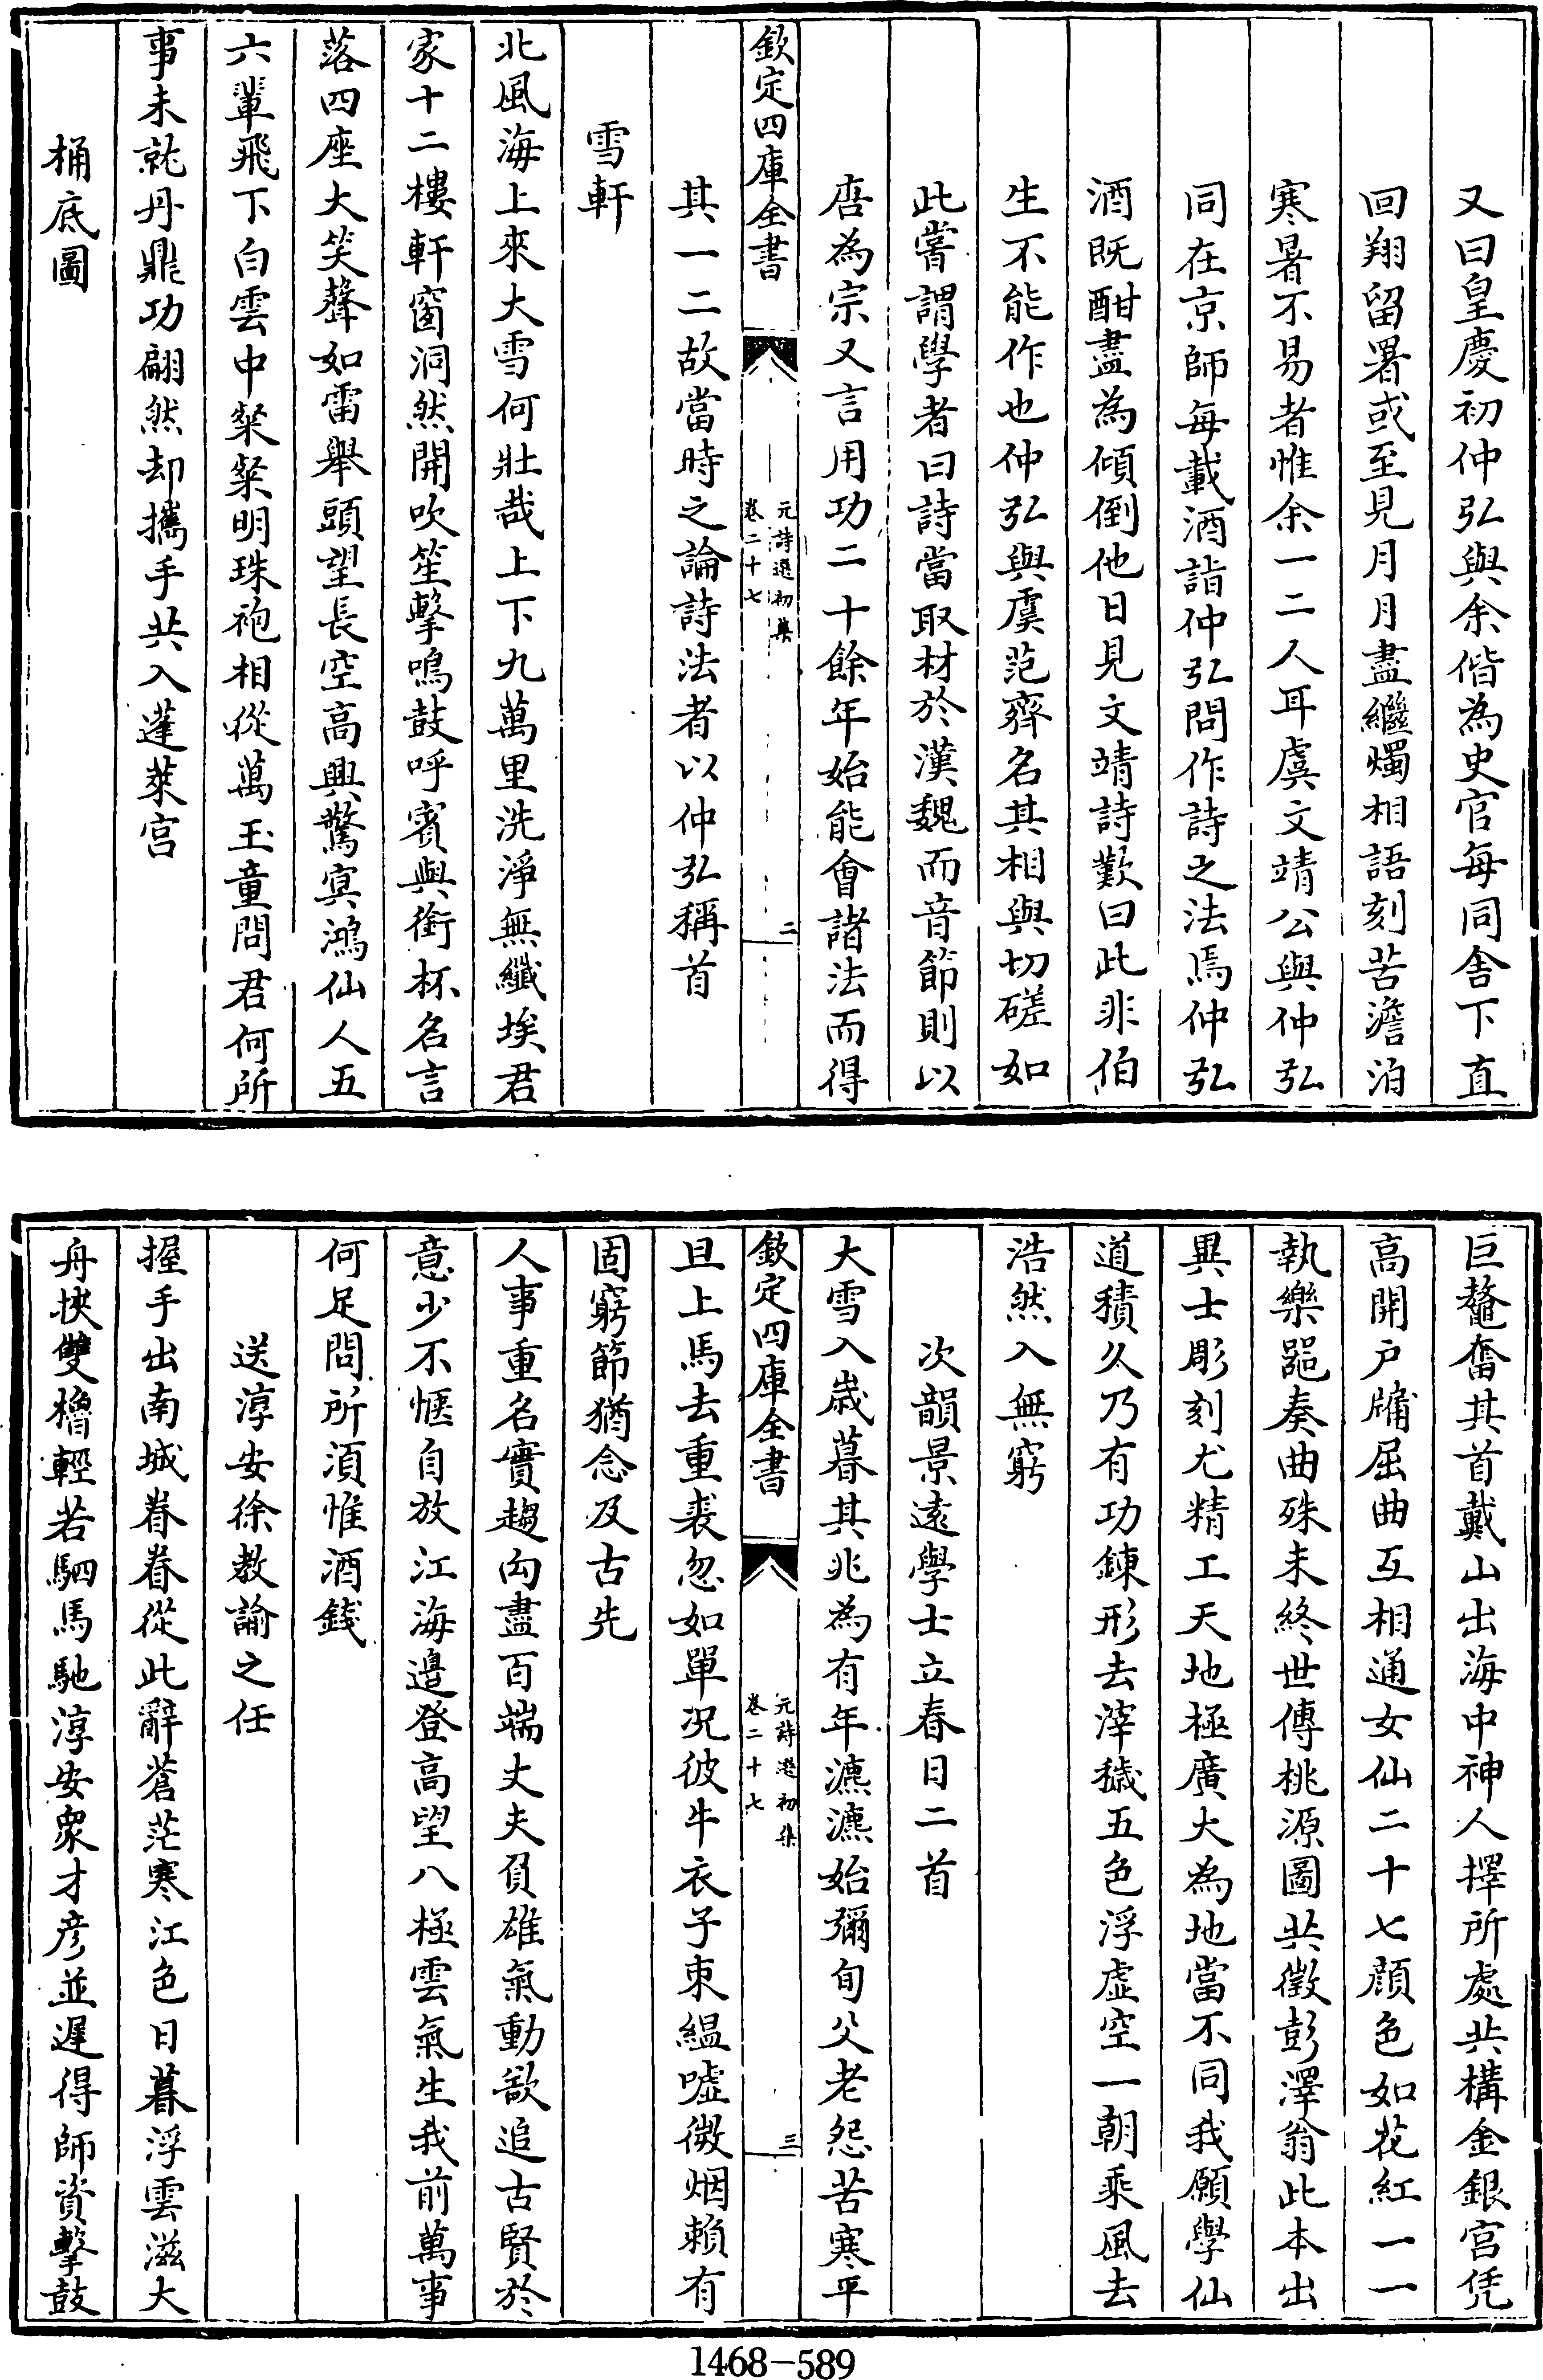 又曰皇慶初仲弘與余偕為史官每同舍下直
回翔留署或至見月月盡繼燭相語刻苦澹泊
寒暑不易者惟余一二人耳虞文靖公與仲弘
同在京師每載酒詣仲弘問作詩之法焉仲弘
酒既酣盡為傾倒他日見文靖詩歎曰此非伯
生不能作也仲弘與虞范齊名其相與切磋如
此嘗謂學者曰詩當取材於漢魏而音節則以
唐為宗又言用功二十餘年始能會諸法而得
欽定四庫全書
元詩選初集
卷二十七
二
其一二故當時之論詩法者以仲弘稱首
雪軒
北風海上來大雪何壯哉上下九萬里洗淨無纖埃君
家十二樓軒窗洞然開吹笙擊鳴鼓呼賓與銜杯名言
落四座大笑聲如雷舉頭望長空高興驚冥鴻仙人五
六輩飛下白雲中粲粲明珠袍相從萬玉童問君何所
事未就丹鼎功翩然却攜手共入蓬萊宫
桶底圖
巨鼇奮其首戴山出海中神人擇所處共構金銀宫凭
高開戶牖屈曲互相通女仙二十七顔色如花紅一一
執樂器奏曲殊未終世傳桃源圖共徵彭澤翁此本出
異士彫刻尤精工天地極廣大為地當不同我願學仙
道積久乃有功鍊形去滓穢五色浮虚空一朝乘風去
浩然入無窮
次韻景遠學士立春日二首
大雪入歲暮其兆為有年瀌瀌始彌旬父老怨苦寒平
欽定四庫全書
元詩選初集
卷二十七
三
旦上馬去重裘忽如單况彼牛衣子束緼噓微烟賴有
固窮節猶念及古先
人事重名實趨向盡百端丈夫負雄氣動欲追古賢於
意少不愜自放江海邉登高望八極雲氣生我前萬事
何足問所須惟酒錢
送淳安徐教諭之任
握手出南城眷眷從此辭蒼茫寒江色日暮浮雲滋大
舟挾雙櫓輕若駟馬馳淳安衆才彦並遲得師資擊鼓
1468-589